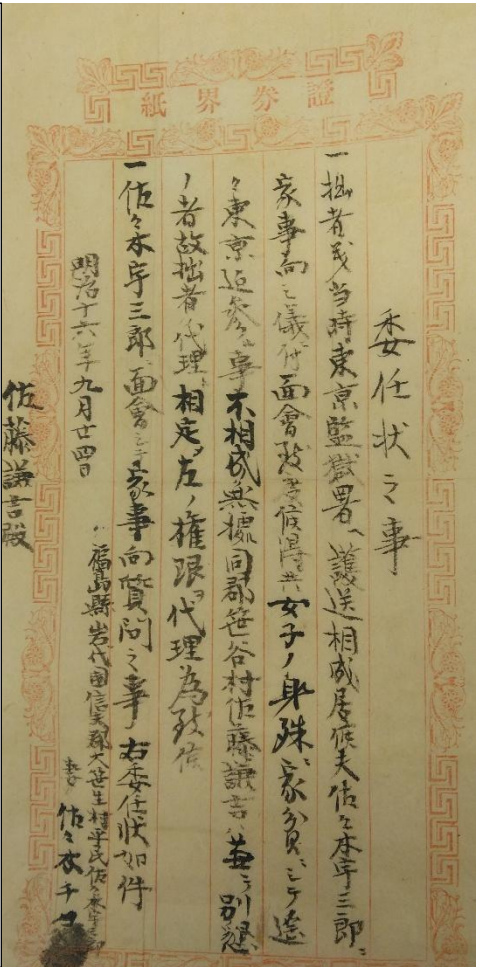 證券界紙
委任状之事
一拙者義当時東京監獄署ヘ護送相成居候夫佐々木宇三郎ニ
家事向之儀ニ付面會致度候得共女子ノ身殊ニ家貧ニシテ遠
々東京迄参候事不相成無據同郡笹谷村佐藤謙吉ハ兼テ別懇
ノ者故拙者代理ニ相定メ左ノ権限ヲ代理為致候
一佐々木宇三郎ヘ面會シテ家事向質問之事 右委任状如件
明治十六年九月廿四日
福島縣岩代国信夫郡大笹生村平民佐々木宇三郎
妻 佐々木チ
佐藤謙吉殿